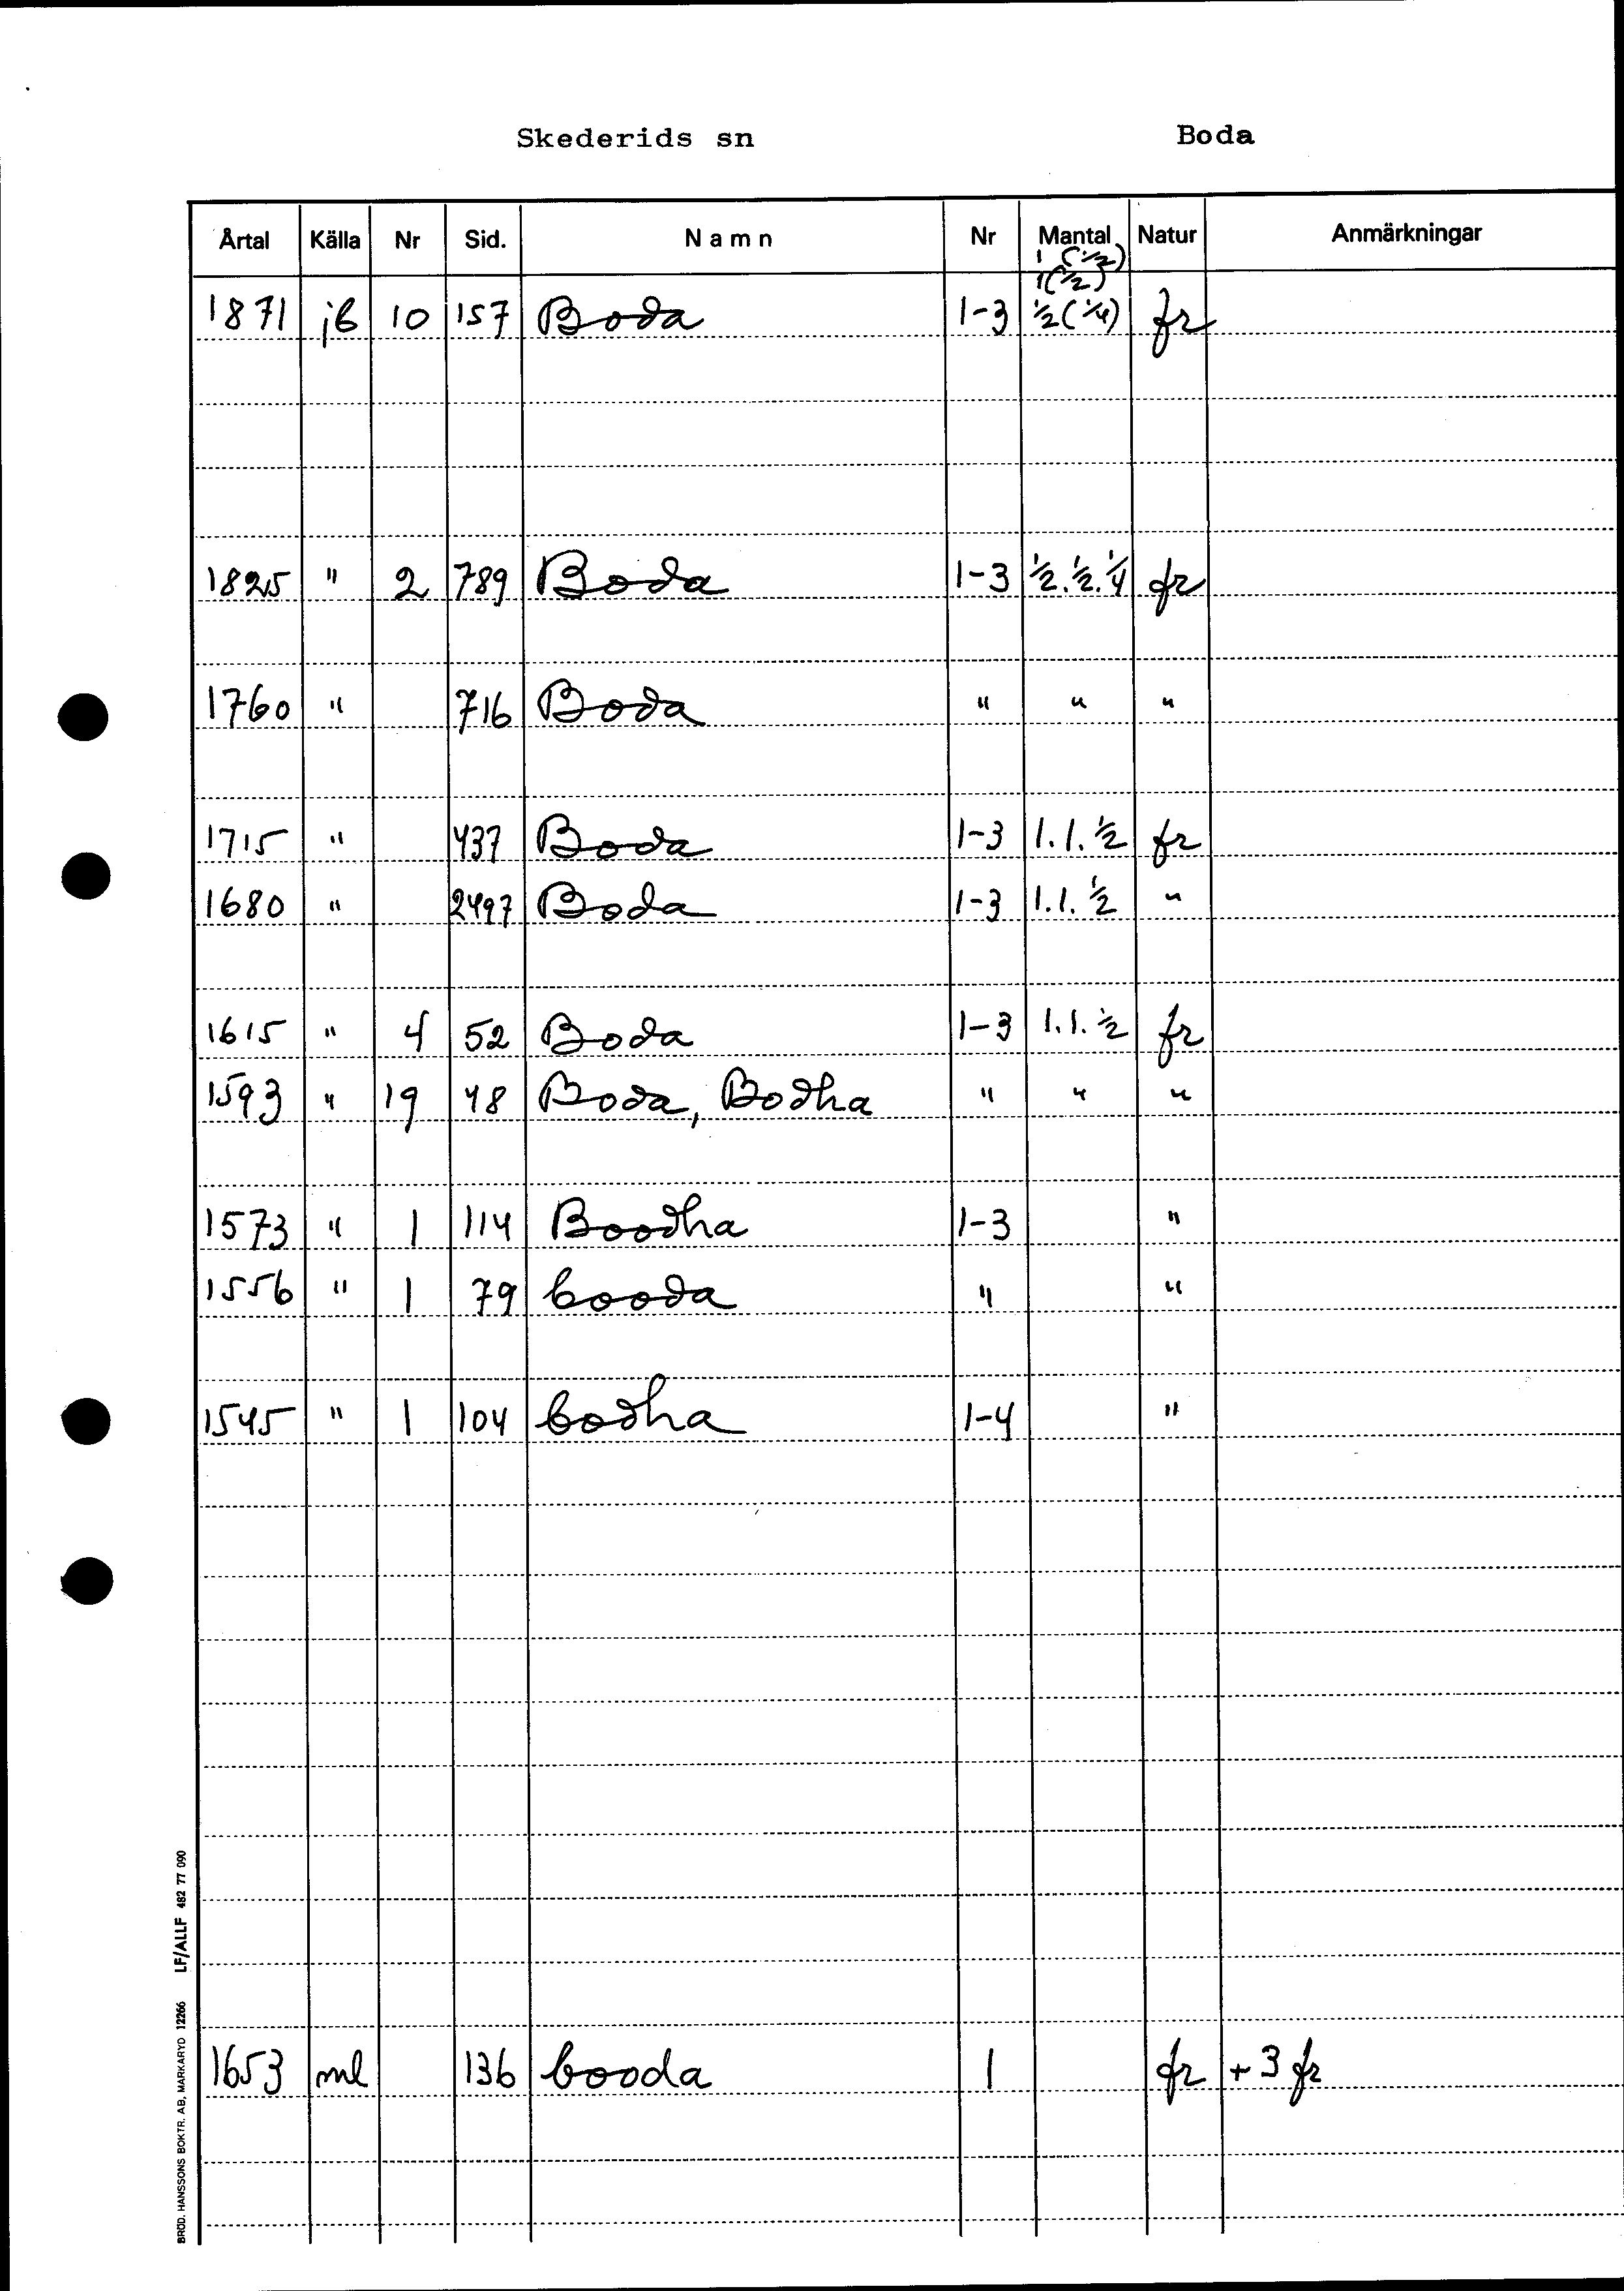 Skederids sn Boda
Årtal Källa Nr Sid. Namn Nr Mantal Natur Anmärkningar
1 (1/2)
1 (1/2)
1871 jb 10 157 Boda 1-3 1/2 (1/4) fr
1825 " 2 789 Boda 1-3 1/2. 1/2. 1/4 fr
1760 " 716 Boda " " "
1715 " 437 Boda 1-3 1. 1. 1/2 fr
1680 " 2497 Boda 1-3 1. 1. 1/2 "
1615 " 4 52 Boda 1-3 1. 1. 1/2 fr
1593 " 19 48 Boda, Bodha " " "
1573 " 1 114 Boodha 1-3 "
1556 " 1 79 booda " "
1545 " 1 104 bodha 1-4 "
1653 ml 136 booda 1 fr + 3 fr
BRÖD. HANSSONS BOKTR. AB, MARKARYD 12266 LF/ALLF 482 77 090